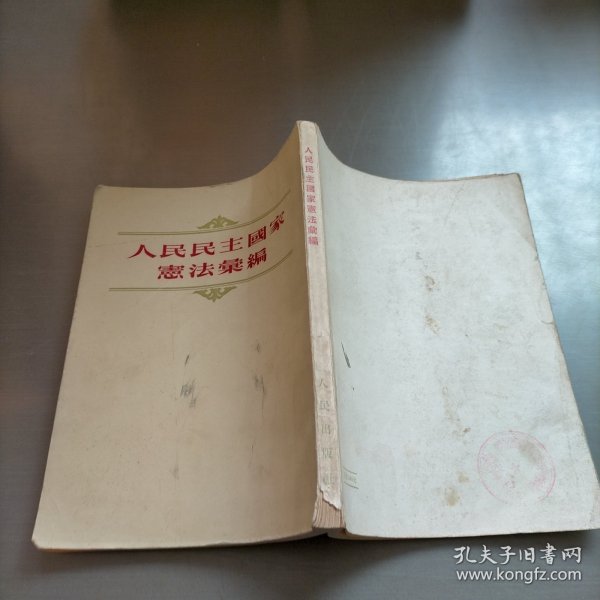 人民民主國家
憲法彙編
人民民主國家憲法彙編
人民出版社
孔夫子旧书网
www.kongfz.com